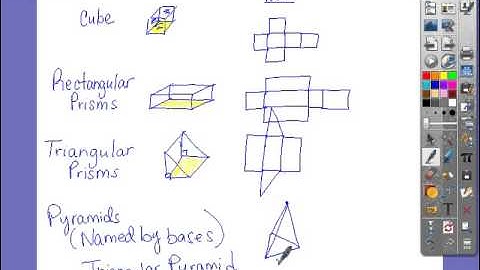 Cube
Rectangular
Prisms
Triangular
Prisms
Pyramids
(Named by bases)
Triangular Pyramid